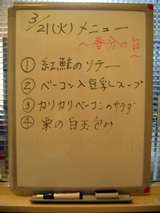 3/21(火)メニュー
～春分の日～
① 紅鮭のソテー
② ベーコン入豆乳スープ
③ カリカリベーコンのサラダ
④ 栗の白玉ぜんざい